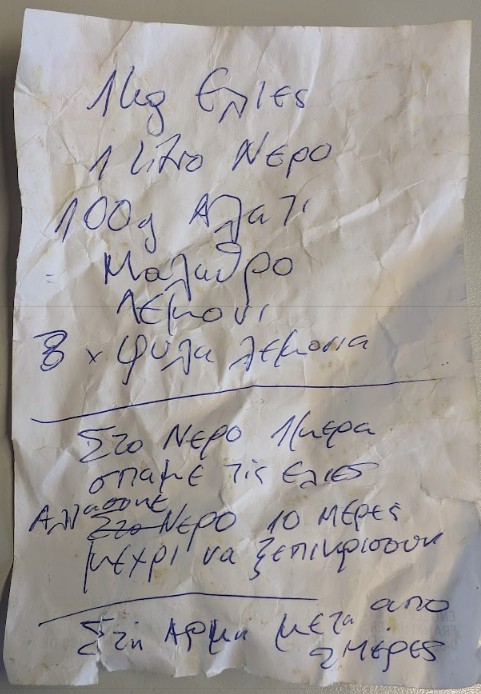 1kg Ελιες
1 Litρο Νερο
100g Αλατι
Μαλαθρο
Λεμονι
8 x φυλα λεμονια
Στο Νερο 1 μερα
σπαμε τις ελιες
Αλλασουμε
Στο Νερο 10 μερες
μεχρι να ξεπικρισουν
Στη Αρμη μετα απο
2 μερες